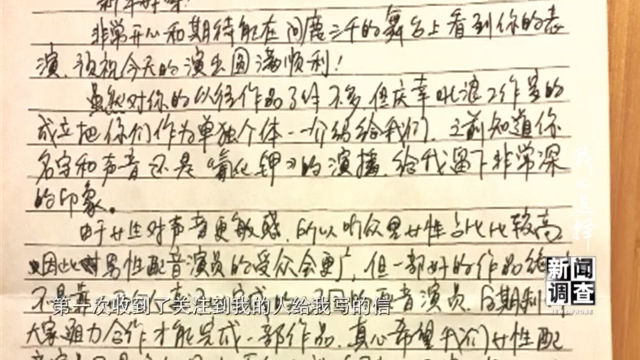 新年好呀!
非常开心和期待能在问鹿三千的舞台上看到你的表
演,预祝今天的演出圆满顺利!
虽然对你的以往作品了解不多,但庆幸吼浪工作室的
成立把你们作为单独个体一一介绍给我们,之前知道你
名字和声音还是《氰化钾》的演播,给我留下非常深
的印象。
由于女性对声音更敏感,所以听众男女性占比比较高
因此对男性配音演员的受众会更广,但一部好的作品绝
不是靠
第一次收到了关注到我的人给我写的信
配音演员
大家通力合作才能完成一部作品,真心希望我们女性配
新闻
调查